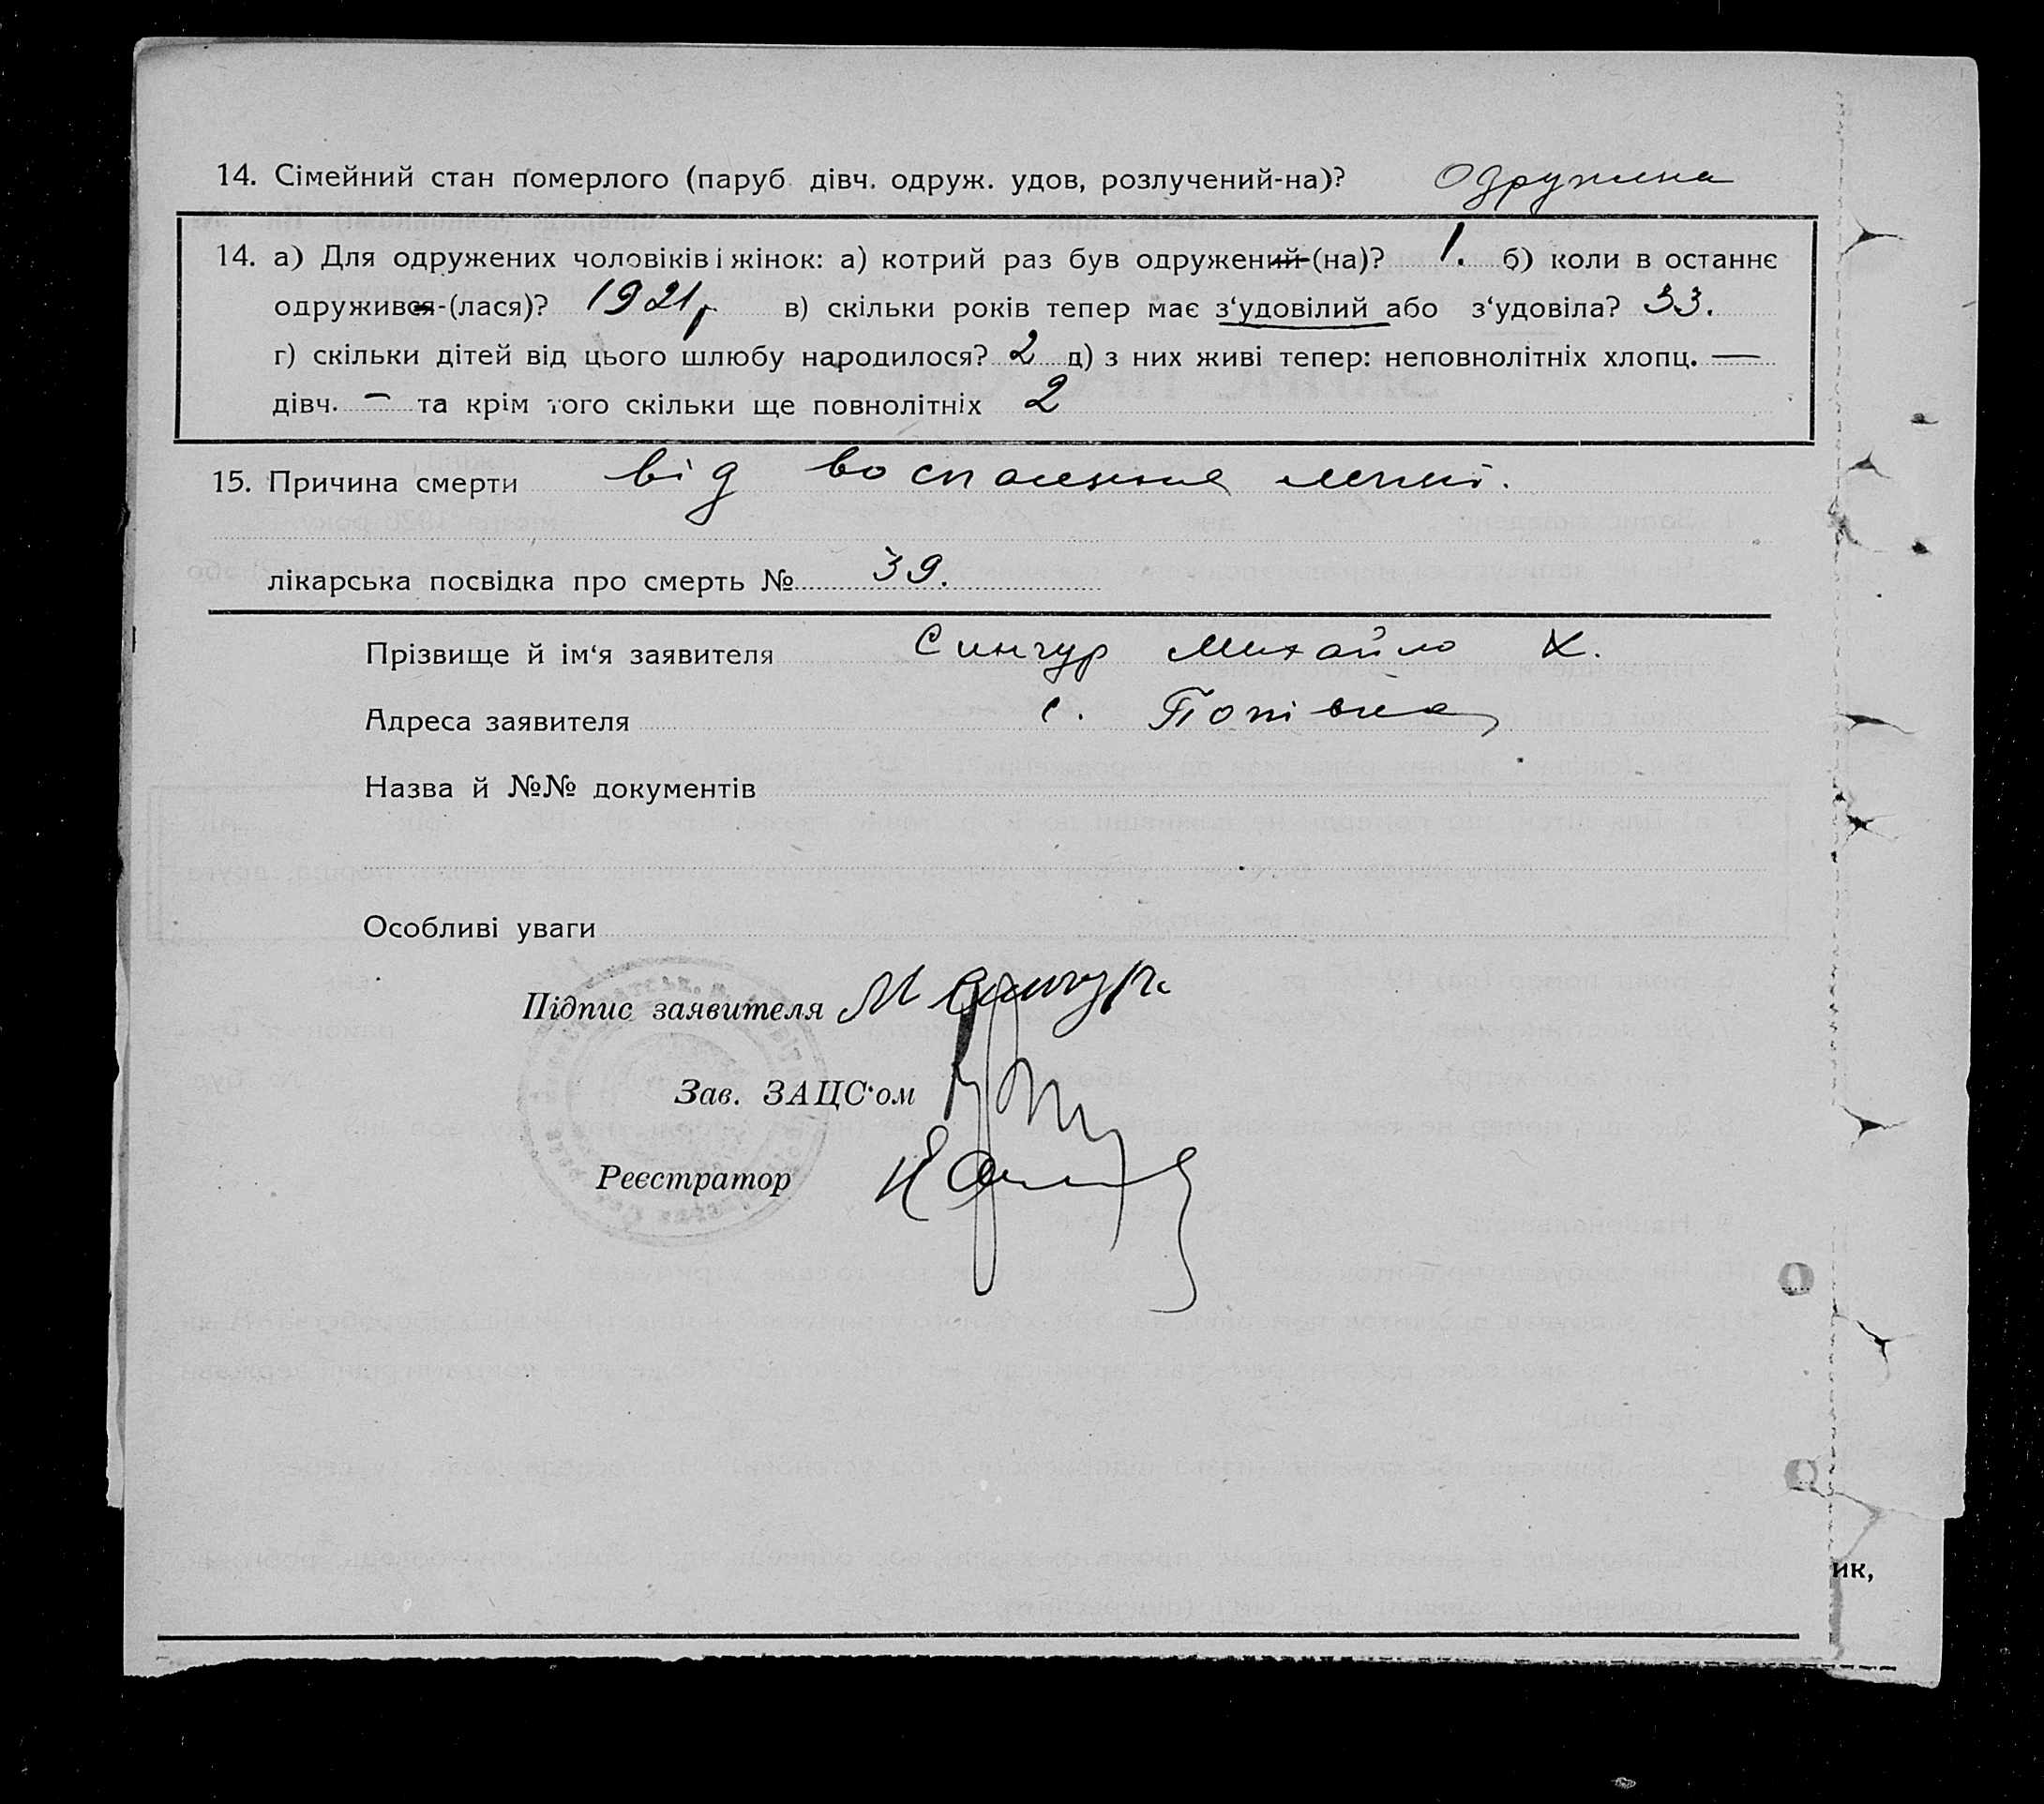 14. Сімейний стан померлого (паруб. дівч. одруж. удов, розлучений-на)? Одружена
14. а) Для одружених чоловіків і жінок: а) котрий раз був одружений-(на)? 1. б) коли в останнє
одружився-(лася)? 1921 р в) скільки років тепер має з‘удовілий або з‘удовіла? 33.
г) скільки дітей від цього шлюбу народилося? 2 д) з них живі тепер: неповнолітніх хлопц. —
дівч. — та крім того скільки ще повнолітніх 2
15. Причина смерти від воспалення
лікарська посвідка про смерть № 39.
Прізвище й ім‘я заявителя Сингур Михайло Х.
Адреса заявителя с. Попівка
Назва й №№ документів
Особливі уваги
Підпис заявителя М Сингур
Зав. ЗАЦС‘ом
Реєстратор
ик,